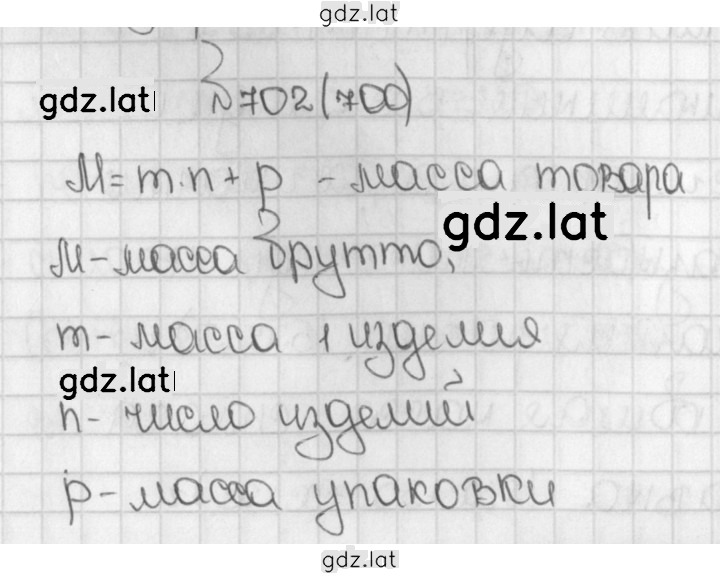 gdz.lat
gdz.lat
№702(700)
M=m·n+p - масса товара
gdz.lat
M-масса брутто,
m-масса 1 изделия
gdz.lat
n-число изделий
p-масса упаковки
gdz.lat